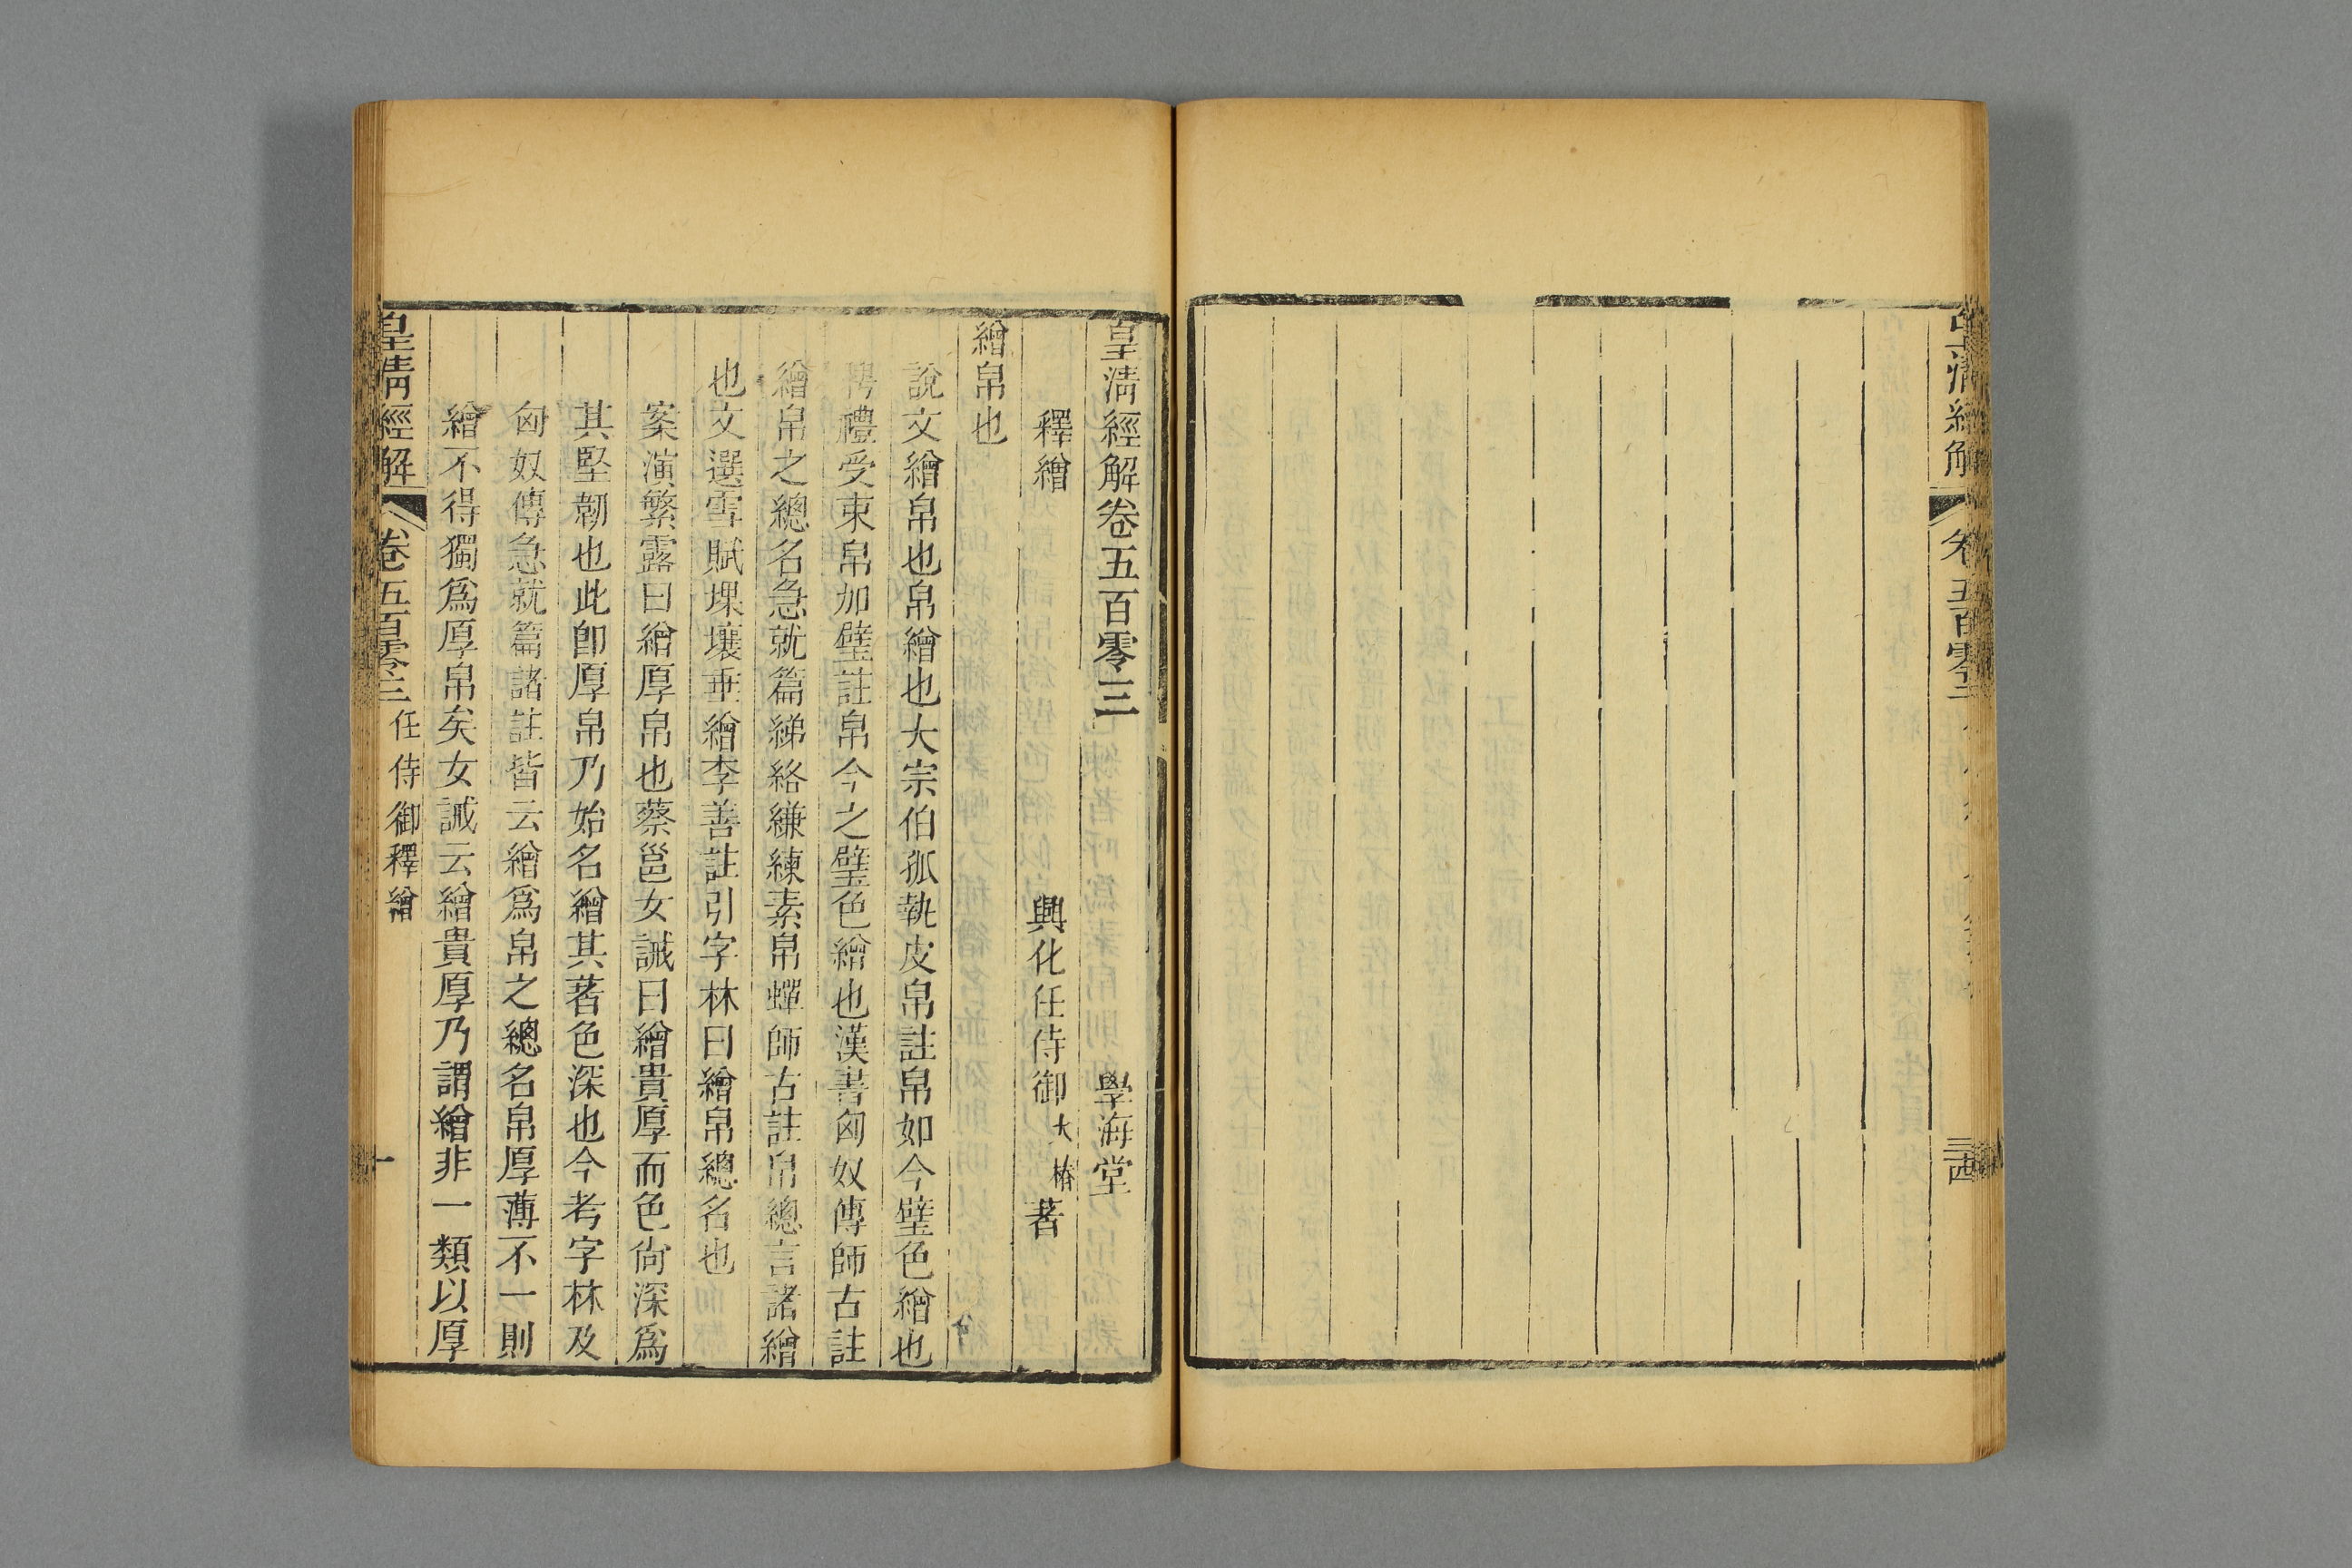 皇清經解卷五百零三 學海堂
釋繒 興化任侍御大椿著
繒帛也
說文繒帛也帛繒也大宗伯孤執皮帛註帛如今璧色繒也
聘禮受束帛加璧註帛今之璧色繒也漢書匈奴傳師古註
繒帛之總名急就篇綈絡縑練素帛蟬師古註帛總言諸繒
也文選雪賦堁壤垂繒李善註引字林曰繒帛總名也
案演繁露曰繒厚帛也蔡邕女誡曰繒貴厚而色尙深爲
其堅韌也此卽厚帛乃始名繒其著色深也今考字林及
匈奴傳急就篇諸註皆云繒爲帛之總名帛厚薄不一則
繒不得獨爲厚帛矣女誡云繒貴厚乃謂繒非一類以厚
皇清經解 卷五百零三 任侍御釋繒 一